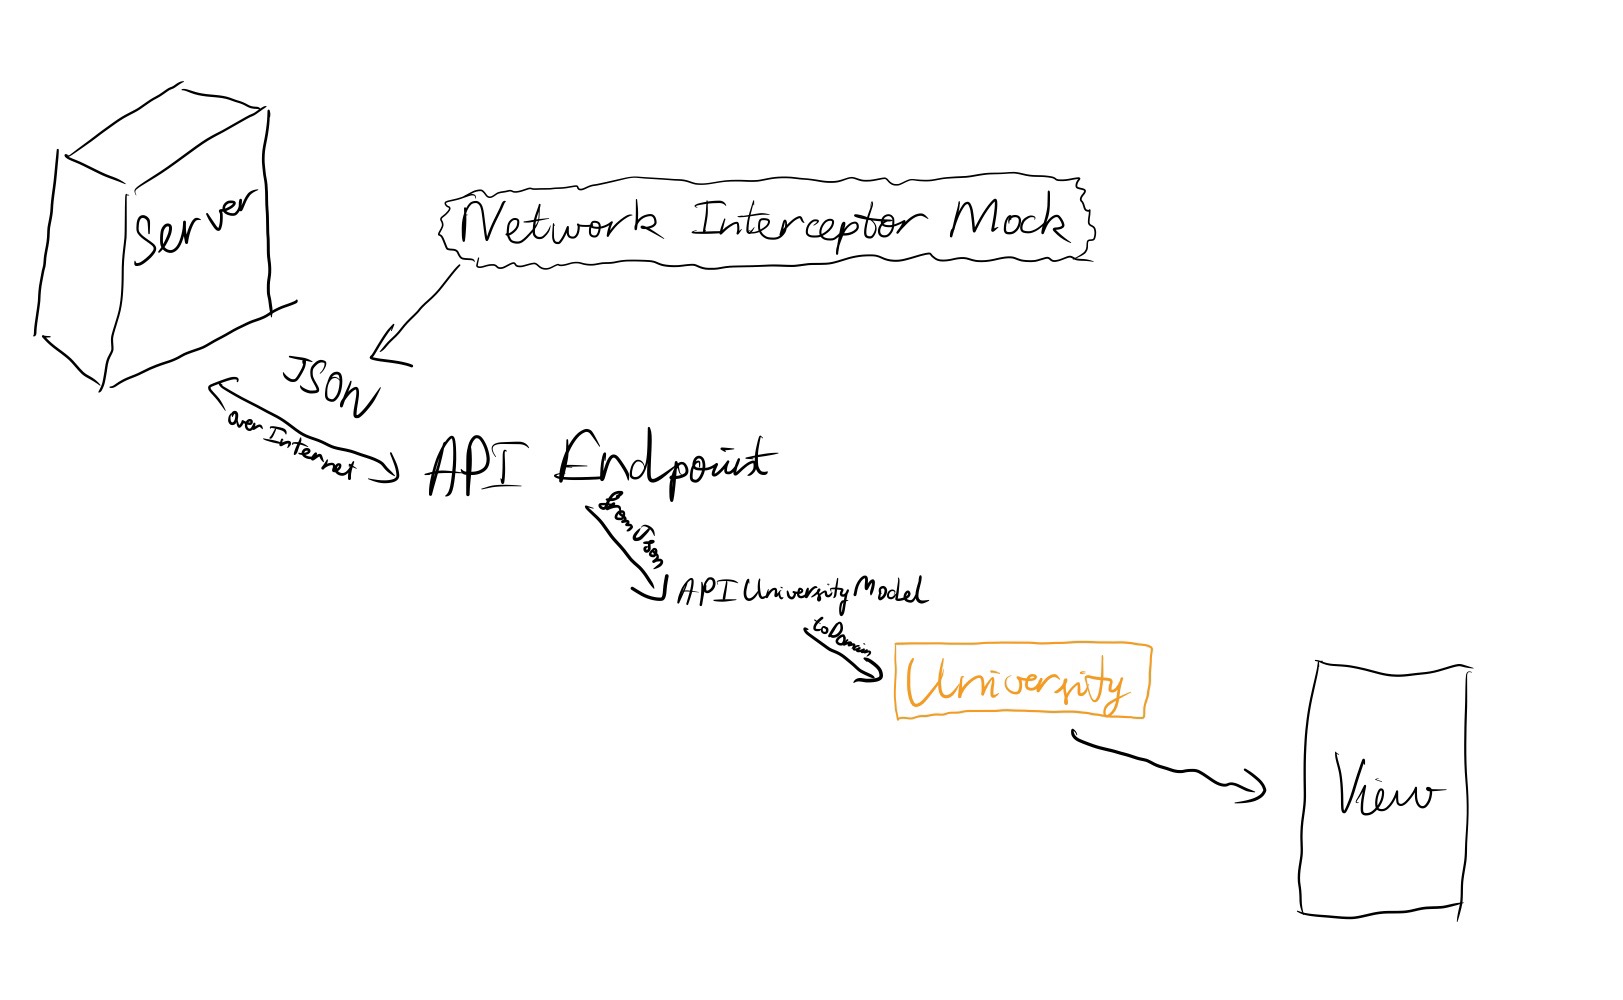 Server
Network Interceptor Mock
JSON
over Internet
API Endpoint
from Json
API University Model
toDomain
University
View